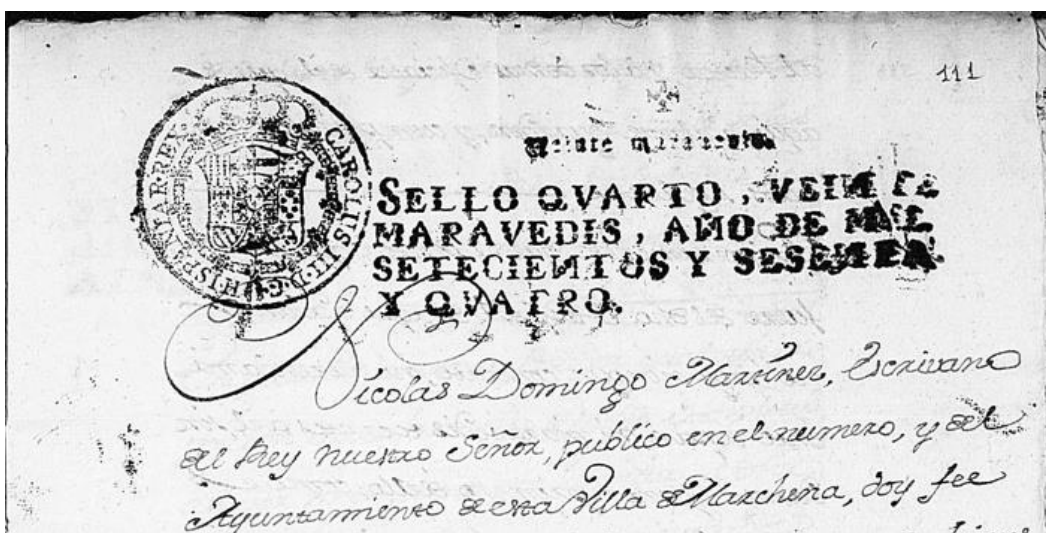 111
CAROLUS III D G HISPANIAR REX
Veinte maravedis
SELLO QVARTO, VEINTE
MARAVEDIS, AÑO DE MIL
SETECIENTOS Y SESENTA
Y QVATRO.
Nicolas Domingo Martinez, Escrivano
del Rey nuestro Señor, publico en el numero, y del
Ayuntamiento de esta Villa de Marchena, doy fee